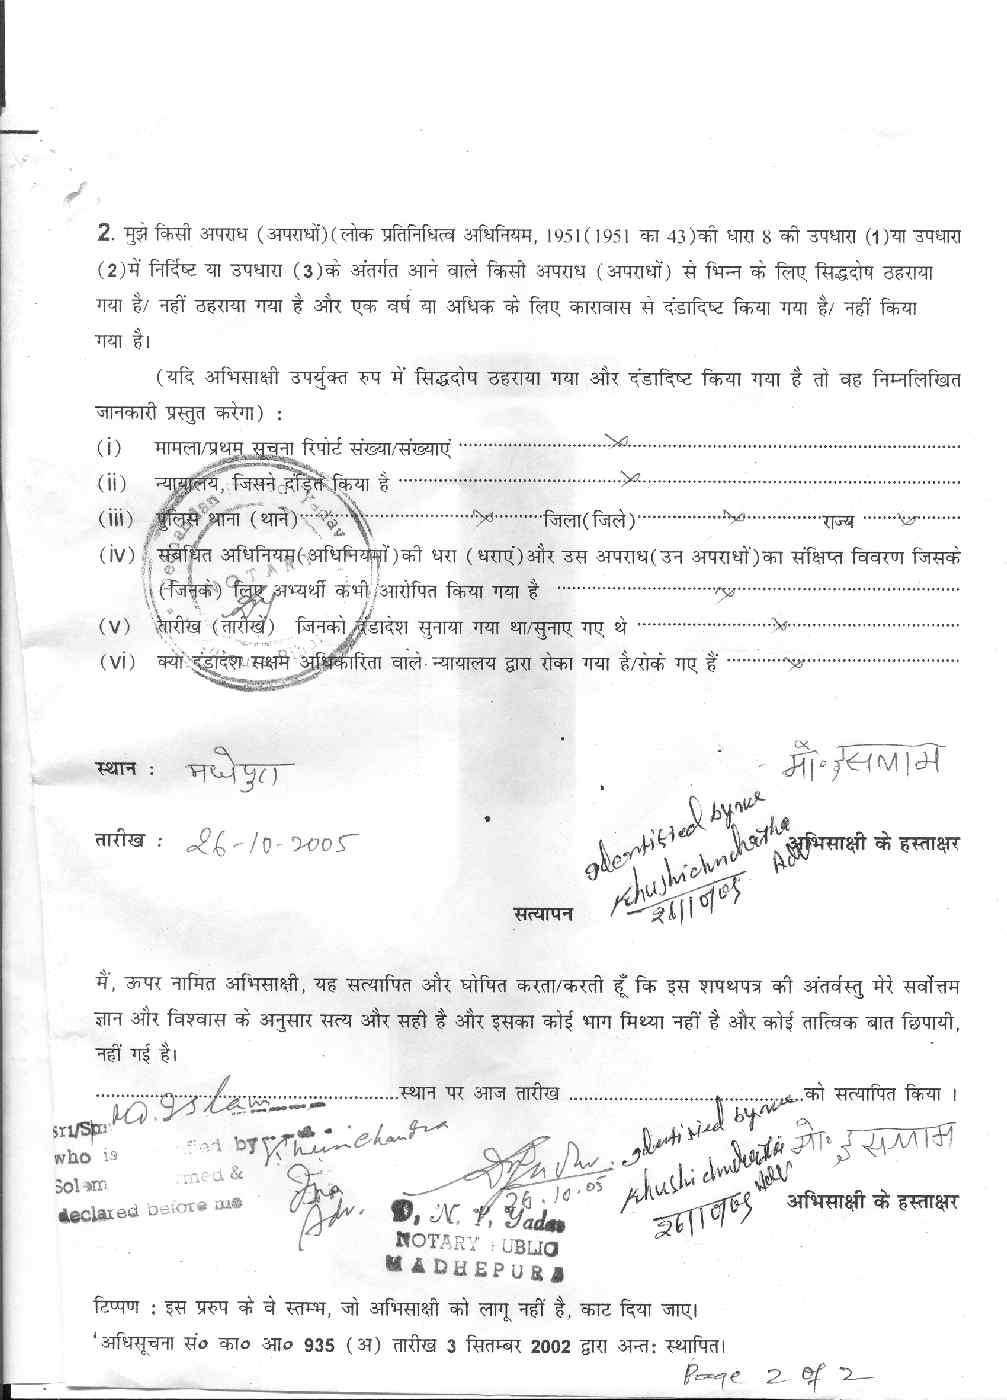 2. मुझे किसी अपराध (अपराधों)(लोक प्रतिनिधित्व अधिनियम, 1951(1951 का 43)की धारा 8 की उपधारा (1)या उपधारा
(2)में निर्दिष्ट या उपधारा (3)के अंतर्गत आने वाले किसी अपराध (अपराधों) से भिन्न के लिए सिद्धदोष ठहराया
गया है/ नहीं ठहराया गया है और एक वर्ष या अधिक के लिए कारावास से दंडादिष्ट किया गया है/ नहीं किया
गया है।
(यदि अभिसाक्षी उपर्युक्त रुप में सिद्धदोष ठहराया गया और दंडादिष्ट किया गया है तो वह निम्नलिखित
जानकारी प्रस्तुत करेगा) :
(i) मामला/प्रथम सूचना रिपोर्ट संख्या/संख्याएं
(ii) न्यायालय, जिसने दंडित किया है
(iii) पुलिस थाना (थाने) जिला(जिले) राज्य
(iv) संबंधित अधिनियम(अधिनियमों)की धरा (धराएं)और उस अपराध(उन अपराधों)का संक्षिप्त विवरण जिसके
(जिनके) लिए अभ्यर्थी कभी आरोपित किया गया है
(v) तारीख (तारीखें) जिनको दंडादेश सुनाया गया था/सुनाए गए थे
(vi) क्या दंडादेश सक्षम अधिकारिता वाले न्यायालय द्वारा रोका गया है/रोके गए हैं
स्थान : मधेपुरा
मो॰ इसलाम
तारीख : 26-10-2005
Identified by me
Khushichndratha
Adv
26/10/05
अभिसाक्षी के हस्ताक्षर
सत्यापन
मैं, ऊपर नामित अभिसाक्षी, यह सत्यापित और घोषित करता/करती हूँ कि इस शपथपत्र की अंतर्वस्तु मेरे सर्वोत्तम
ज्ञान और विश्वास के अनुसार सत्य और सही है और इसका कोई भाग मिथ्या नहीं है और कोई तात्विक बात छिपायी,
नहीं गई है।
स्थान पर आज तारीख को सत्यापित किया ।
Md. Islam
Sri/Smt
who is fied by
Solem rmed &
declared before me
Adv.
26.10.05
D. N. P. Yadav
NOTARY PUBLIC
MADHEPURA
Identified by me
Khushichndratha
Adv
26/10/05
मो॰ इसलाम
अभिसाक्षी के हस्ताक्षर
टिप्पण : इस प्ररुप के वे स्तम्भ, जो अभिसाक्षी को लागू नहीं है, काट दिया जाए।
'अधिसूचना सं० का० आ० 935 (अ) तारीख 3 सितम्बर 2002 द्वारा अन्त: स्थापित।
Page 2 of 2